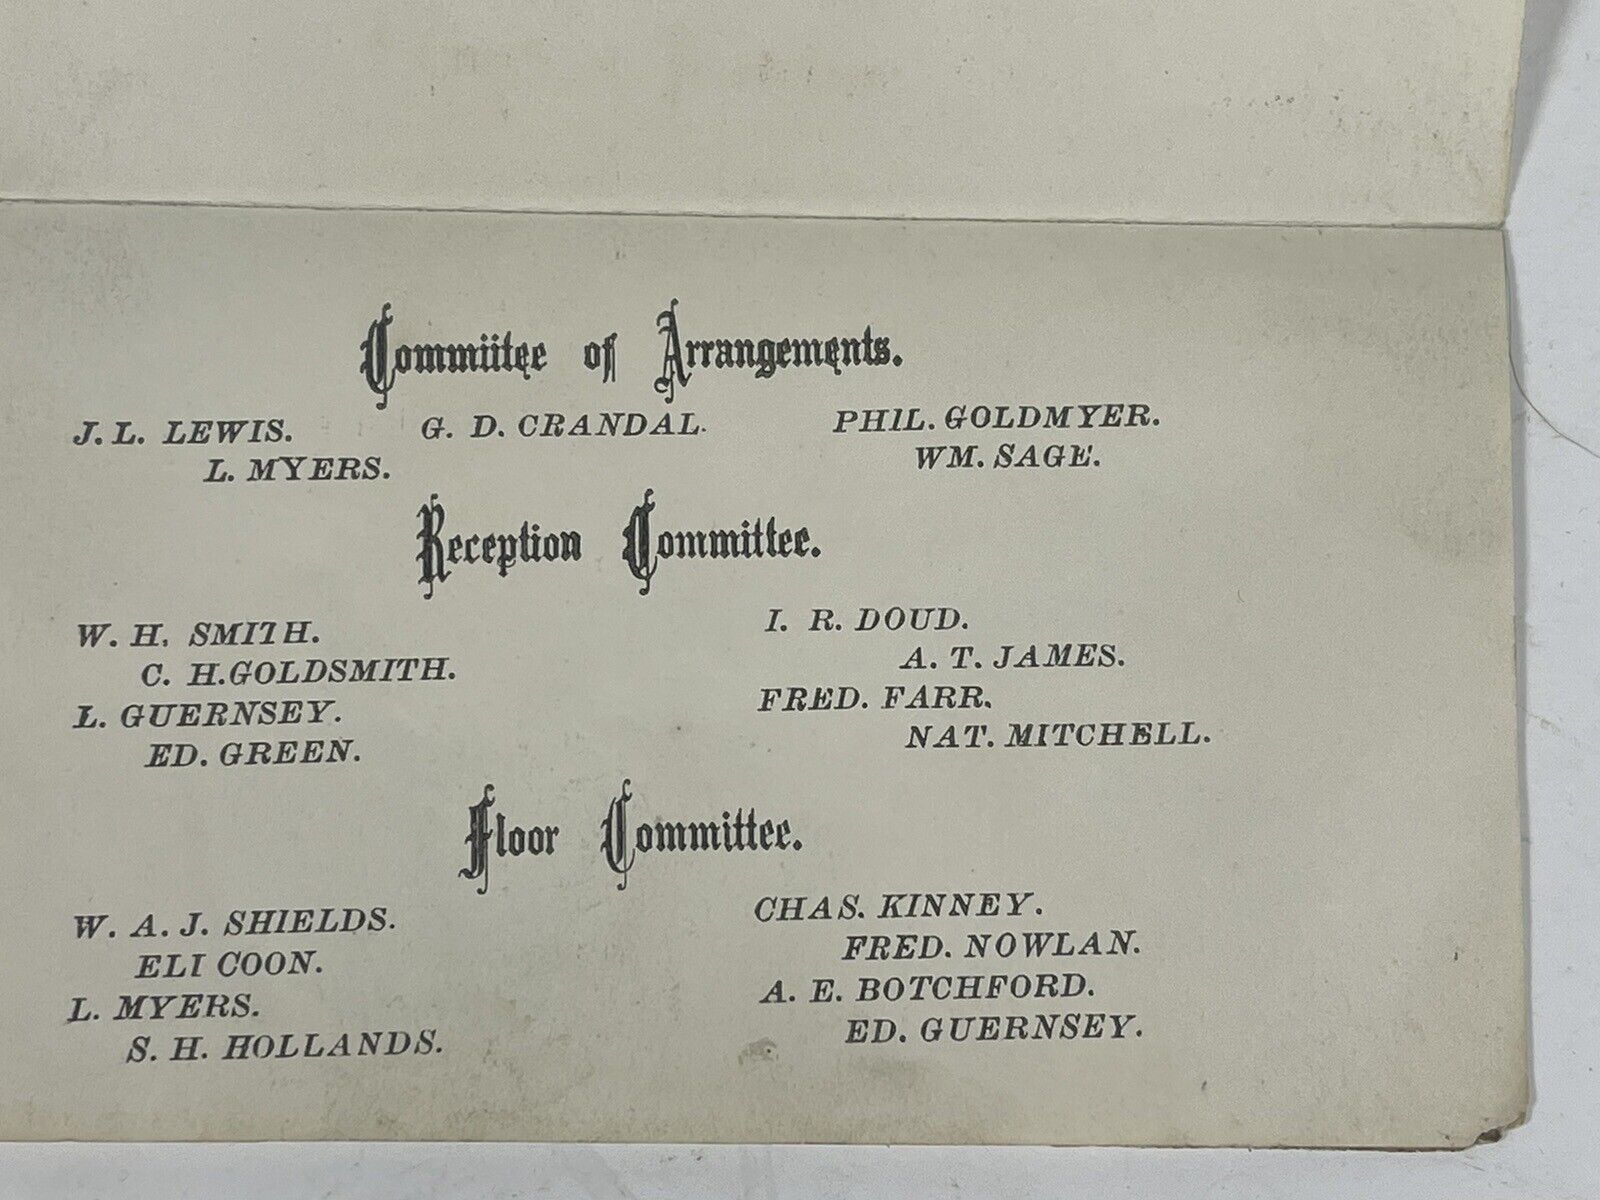 Commiitee of Arrangements.
J. L. LEWIS. G. D. CRANDAL. PHIL. GOLDMYER.
L. MYERS. WM. SAGE.
Reception Committee.
W. H. SMITH. I. R. DOUD.
C. H. GOLDSMITH. A. T. JAMES.
L. GUERNSEY. FRED. FARR.
ED. GREEN. NAT. MITCHELL.
Floor Committee.
W. A. J. SHIELDS. CHAS. KINNEY.
ELI COON. FRED. NOWLAN.
L. MYERS. A. E. BOTCHFORD.
S. H. HOLLANDS. ED. GUERNSEY.